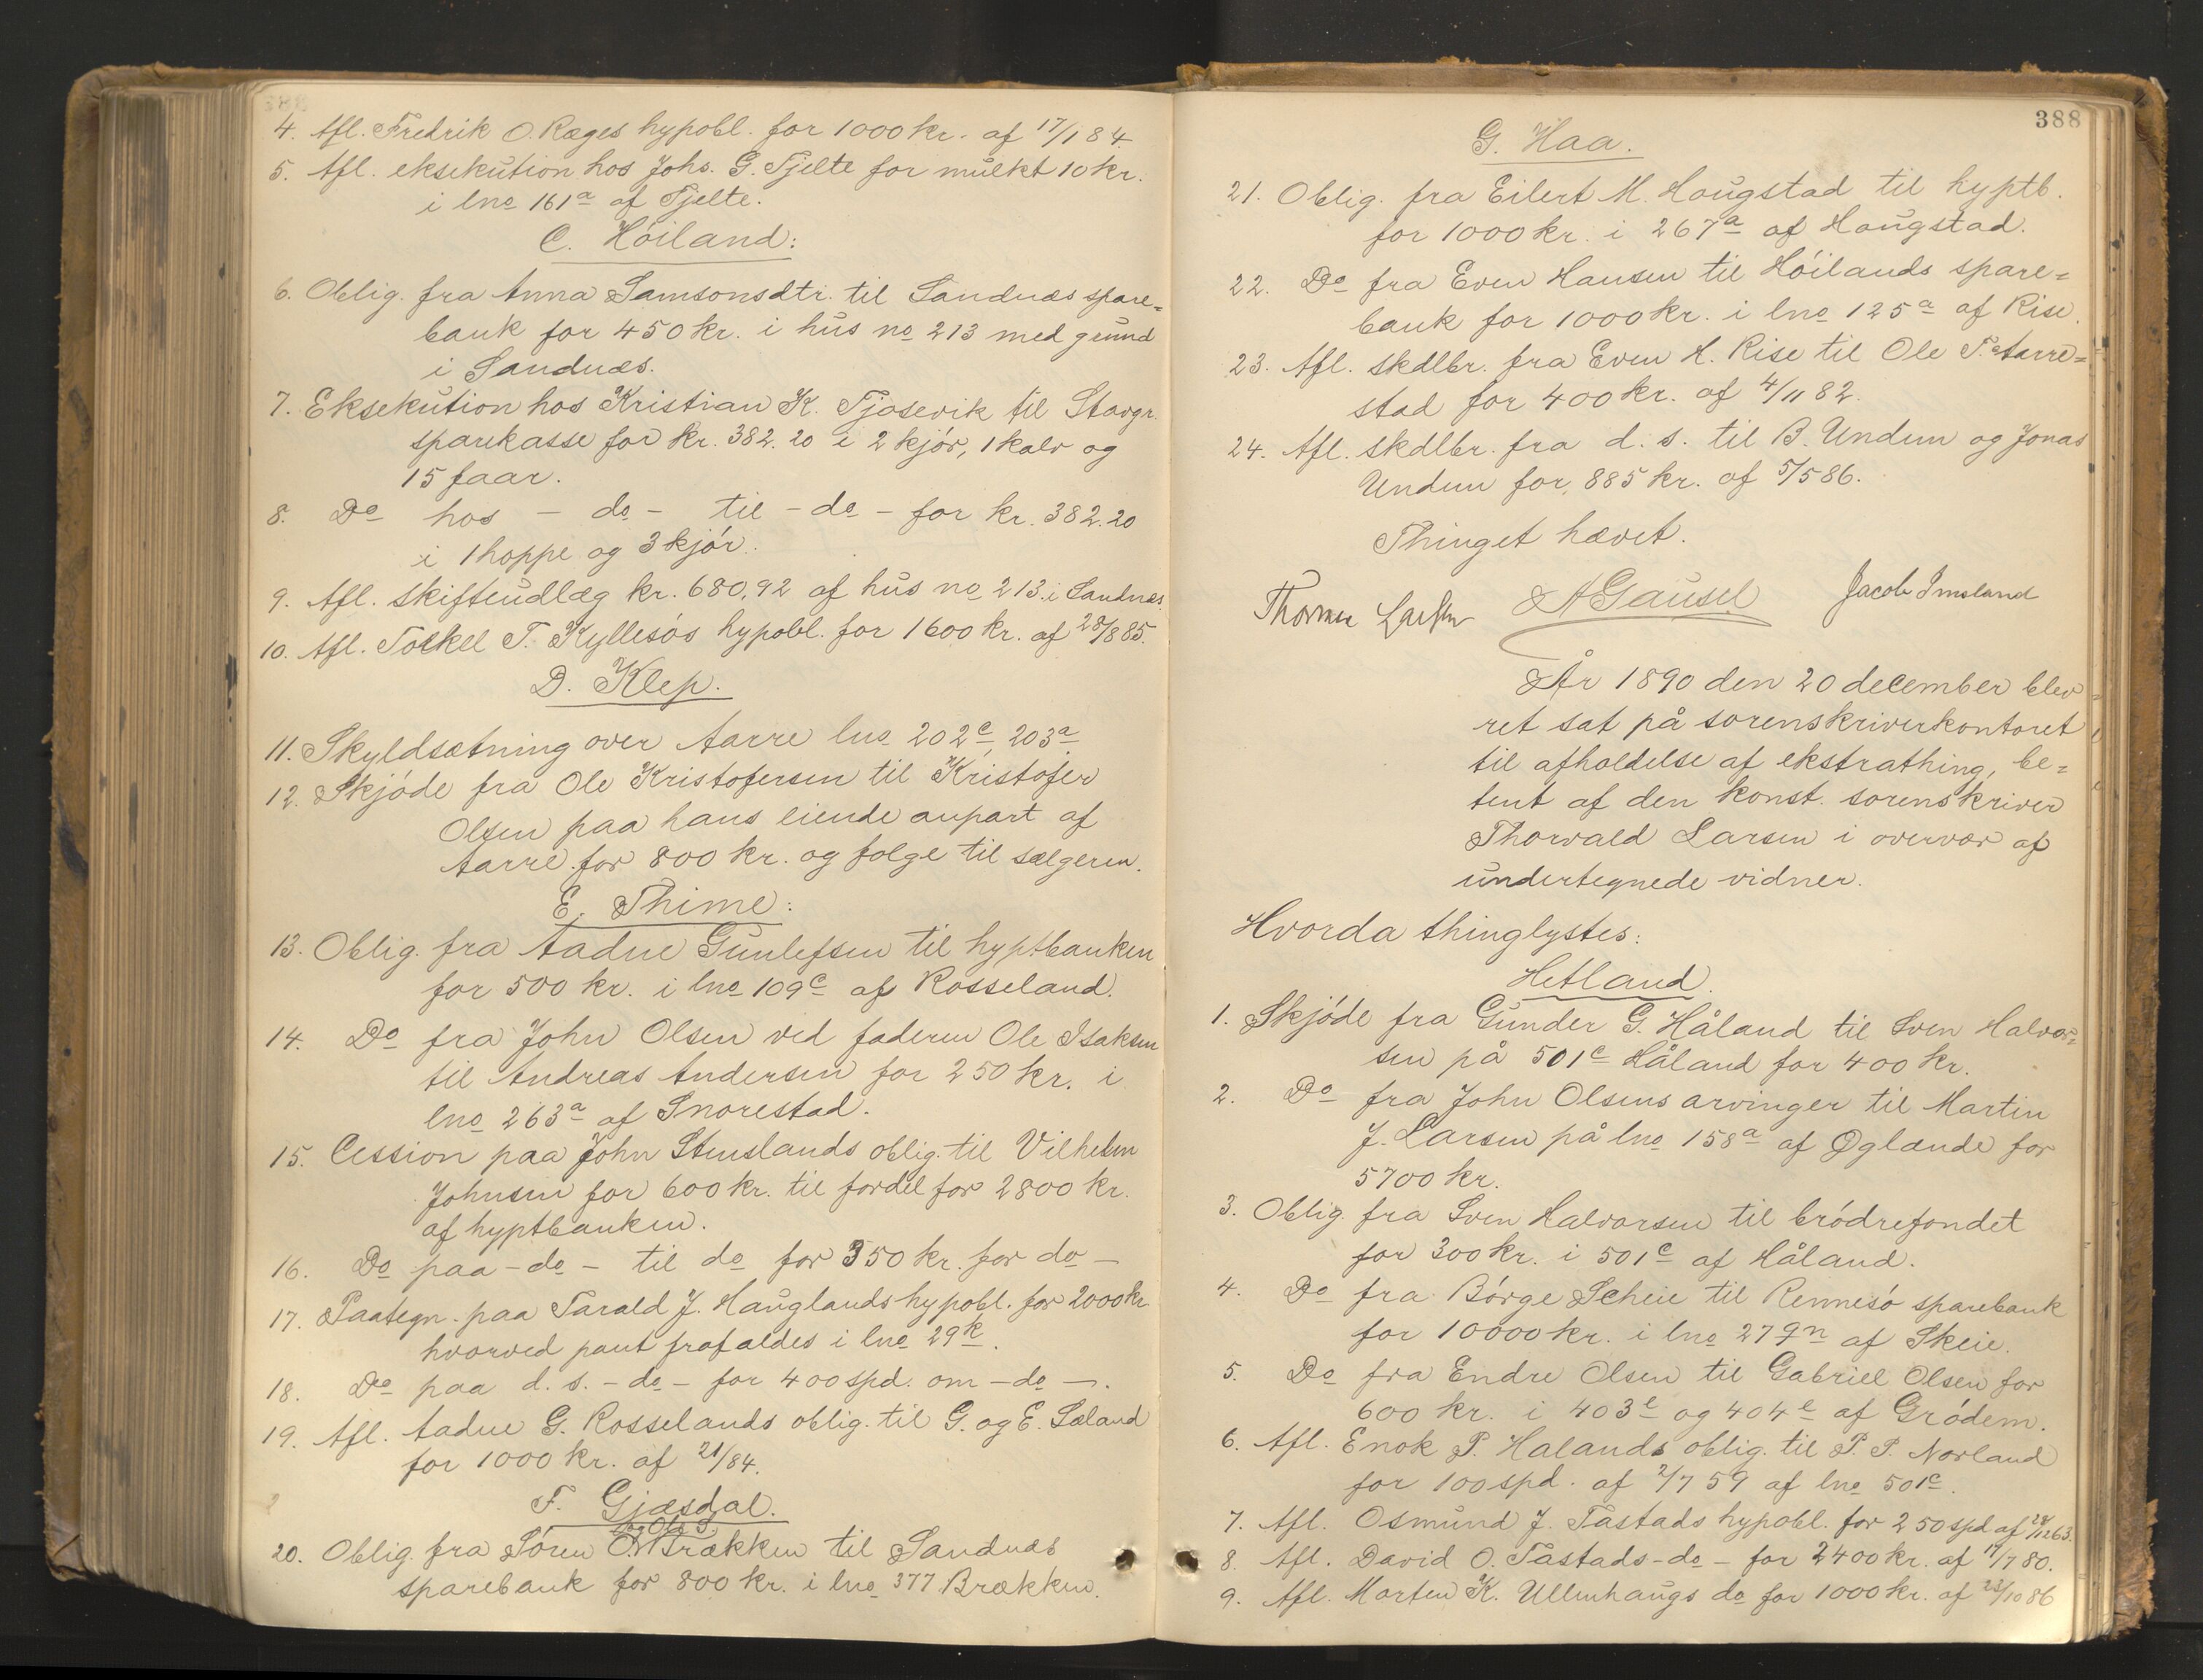 4. Afl. Fredrik O. Ræges hypobl. for 1000 kr. af 17/1 84.
5. Afl. eksekution hos Johs. G. Tjelte for mulkt 10 kr.
i lno 161a af Tjelte.
C. Höiland:
6. Oblig. fra Anna Samsonsdtr. til Sandnæs spare=
bank for 450 kr. i hus no 213 med grund
i Sandnæs.
7. Eksekution hos Kristian K. Tjosevik til Stavgr.
sparekasse for kr. 382.20 i 2 kjör, 1 kalv og
15 faar.
8. Do hos - do - til - do - for kr. 382.20
i 1 hoppe og 3 kjör.
9. Afl. skifteudlæg kr. 680,92 af hus no 213 i Sandnæs.
10. Afl. Torkel T. Kyllesös hypobl. for 1600 kr. af 28/8 85.
D. Klep.
11. Skyldsætning over Aarre lno 202c, 203a.
12. Skjöde fra Ole Kristofersen til Kristofer
Olsen paa hans eiende anpart af
Aarre for 800 kr. og følge til sælgeren.
E. Thime:
13. Oblig. fra Aadne Gunlefsen til hyptbanken
for 500 kr. i lno 109c af Rosseland.
14. Do fra John Olsen ved faderen Ole Isaksen
til Andreas Andersen for 250 kr. i
lno 263a af Snorestad.
15. Cession paa John Stenslands oblig. til Vilhelm
Johnsen for 600 kr. til fordel for 2800 kr.
af hyptbanken.
16. Do paa - do - til do for 350 kr. for do -
17. Paategn. paa Tarald J. Hauglands hypobl. for 2000 kr
hvorved pant frafaldes i lno 29k.
18. Do paa d. s. - do - for 400 spd. om - do -.
19. Afl. Aadne G. Rosselands oblig. til G. og E. Sæland
for 1000 kr. af 21/84.
F. Gjæsdal.
20. Oblig. fra Sören O. Brækken til Sandnæs
sparebank for 800 kr. i lno 377 Brækken.
388
G. Haa.
21. Oblig. fra Eilert M. Haugstad til hyptb.
for 1000 kr. i 267a af Haugstad.
22. Do fra Even Hansen til Höilands spare=
bank for 1000 kr. i lno 125a af Rise.
23. Afl. skdlbr. fra Even H. Rise til Ole T. Aarre=
stad for 400 kr. af 4/11 82.
24. Afl. skdlbr. fra d. s. til B. Undem og Jonas
Undem for 885 kr. af 5/5 86.
Thinget hævet.
Thorvald Larsen AGausel Jacob Imsland
År 1890 den 20 december blev
ret sat på sorenskriverkontoret
til afholdelse af ekstrathing, be=
tent af den konst. sorenskriver
Thorvald Larsen i overvær af
undertegnede vidner.
Hvorda thinglystes:
Hetland.
1. Skjöde fra Gunder G. Håland til Sven Halvor=
sen på 501c Håland for 400 kr.
2. Do fra John Olsens arvinger til Martin
J. Larsen på lno 158a af Øglænde for
5700 kr.
3. Oblig. fra Sven Halvorsen til brödrefondet
for 300 kr. i 501c af Håland.
4. Do fra Börge Scheie til Rennesö sparebank
for 10000 kr. i lno 279n af Skeie.
5. Do fra Endre Olsen til Gabriel Olsen for
600 kr. i 403e og 404e af Grödem.
6. Afl. Enok P. Halands oblig. til P. P. Norland
for 100 spd. af 2/7 59 af lno 501c.
7. Afl. Osmund J. Tastads hypobl. for 250 spd af 24/12 63.
8. Afl. David O. Tastads - do - for 2400 kr. af 19/7 80.
9. Afl. Morten K. Ullenhaugs do for 1000 kr. af 23/10 86